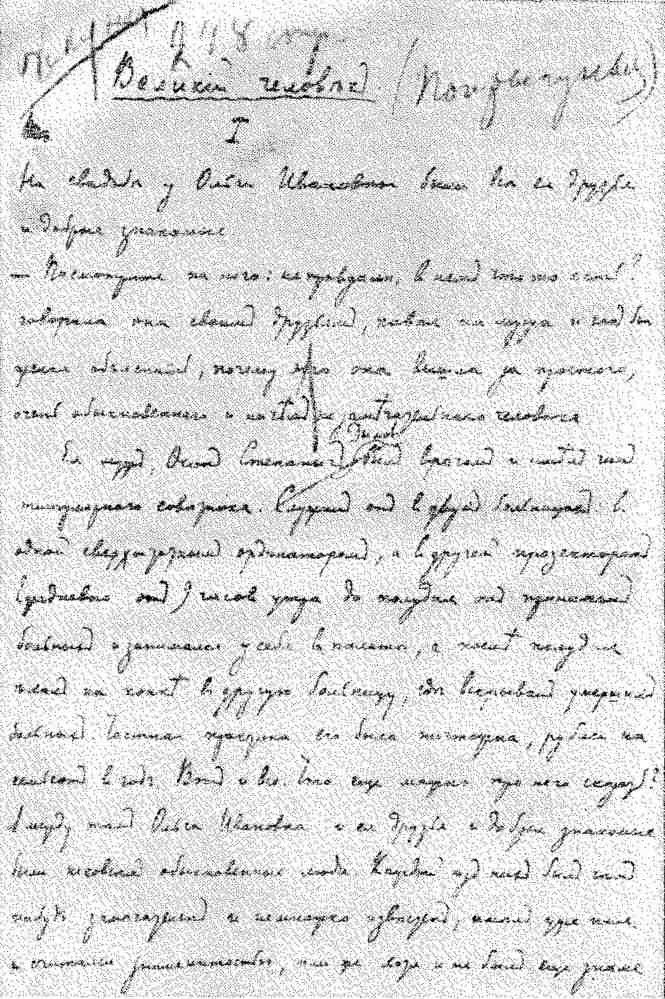 248 стр.
Великій человѣкъ (Попрыгунья)
I
На свадьбѣ у Ольги Ивановны были всѣ ея друзья
и добрые знакомые
— Посмотрите на него: не правда ли, въ немъ что-то есть?
говорила она своимъ друзьямъ, кивая на мужа и какъ бы
желая объяснить, почему это она вышла за простого,
очень обыкновеннаго и ничѣмъ не замѣчательнаго человѣка
Ея мужъ, Осипъ Степанычъ Дымовъ былъ врачомъ и имѣлъ чинъ
титулярнаго совѣтника. Служилъ онъ въ двухъ больницахъ: въ
одной сверхштатнымъ ординаторомъ, а въ другой прозекторомъ
Ежедневно отъ 9 часовъ утра до полудня онъ принималъ
больныхъ и занимался у себя въ палатѣ, а послѣ полудня
ѣхалъ на конкѣ въ другую больницу, гдѣ вскрывалъ умершихъ
больныхъ. Частная практика его была ничтожна, рублей на
пятьсотъ въ годъ. Вотъ и все. Что еще можно про него сказать?
А между тѣмъ Ольга Ивановна и ея друзья и добрые знакомые
были не совсѣмъ обыкновенные люди. Каждый изъ нихъ былъ чѣмъ
нибудь замѣчателенъ и немножко извѣстенъ, имѣлъ уже имя
и считался знаменитостью, или же хотя и не былъ еще знаме